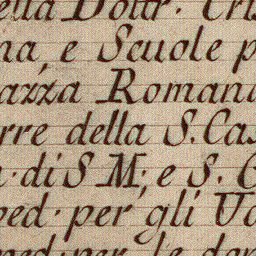 ella Dottr. Cris
na, e Scuole p
iazza Romana
rre della S. Cas
a. di S M; e S. C
ped. per gli Uo
ped. per le don